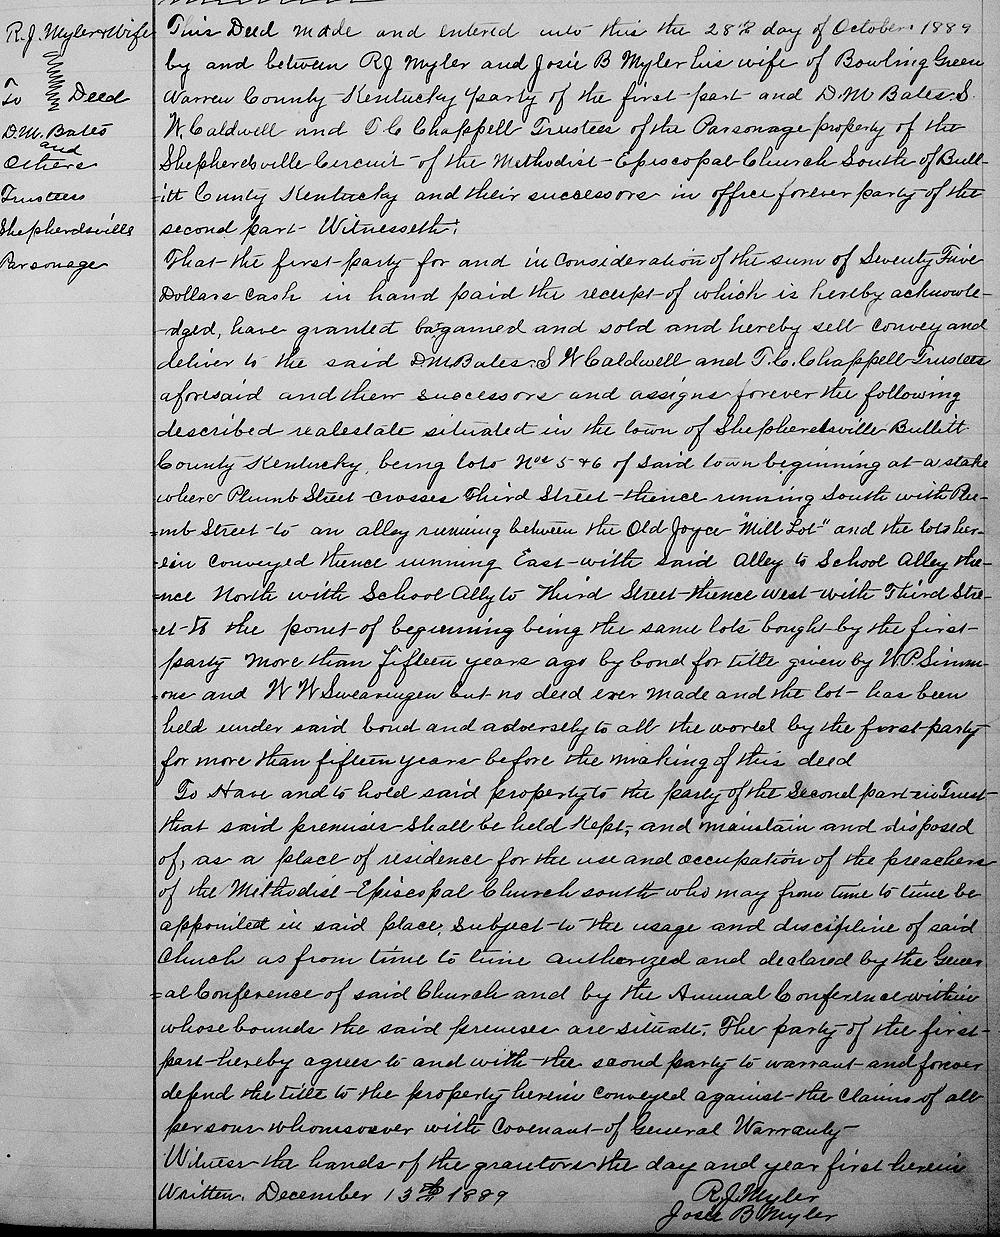 R.J. Myler & Wife
To Deed
D.M. Bates
and
Others
Trustees
Shepherdsville
Parsonage
This Deed made and entered into this the 28th day of October 1889
by and between R J Myler and Josie B Myler his wife of Bowling Green
Warren County Kentucky party of the first part and D. M Bates. S.
W. Caldwell and T C Chappell Trustees of the Parsonage property of the
Shepherdsville Circuit of the Methodist Episcopal Church South of Bull-
-itt Cunty Kentucky and their successors in office forever party of the
second part Witnesseth:
That the first party for and in consideration of the sum of Seventy Five
Dollars cash in hand paid the receipt of which is hereby acknowle-
-dged, have granted bargained and sold and hereby sell convey and
deliver to the said D.M. Bates. S W Caldwell and T. C. Chappell Trustees
aforesaid and their successors and assigns forever the following
described realestate situated in the town of Shepherdsville Bullitt
County Kentucky, being lots Nos 5 & 6 of said town beginning at a stake
where Plumb Street crosses Third Street thence running South with Plu-
-mb Street to an alley running between the Old Joyce "Mill Lot" and the lots her-
-ein conveyed thence running East with said Alley to School Alley the-
-nce North with School Ally to Third Street thence west with Third Stre-
-et to the point of beginning being the same lots bought by the first
party more than fifteen years ago by bond for title given by W. P. Simm-
-ons and W W Swearingen but no deed ever made and the lot has been
held under said bond and adversely to all the world by the first party
for more than fifteen years before the making of this deed
To Have and to hold said property to the party of the Second part in Trust
that said premises shall be held kept, and maintain and disposed
of, as a place of residence for the use and occupation of the preachers
of the Methodist Episcopal Church south who may from time to time be
appointed in said place, subject to the usage and discipline of said
Church as from time to time authorized and declared by the Gener-
-al Conference of said Church and by the Annual Conference within
whose bounds the said premises are situate. The party of the first
part hereby agrees to and with the second party to warrant and forever
defend the title to the property herein conveyed against the claims of all
persons whomsoever with Covenant of General Warranty
Witness the hands of the grantors the day and year first herein
Written. December 13th 1889
R. J. Myler
Josie B Myler